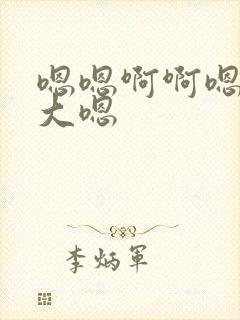 嗯嗯啊啊嗯
大嗯
李炳軍